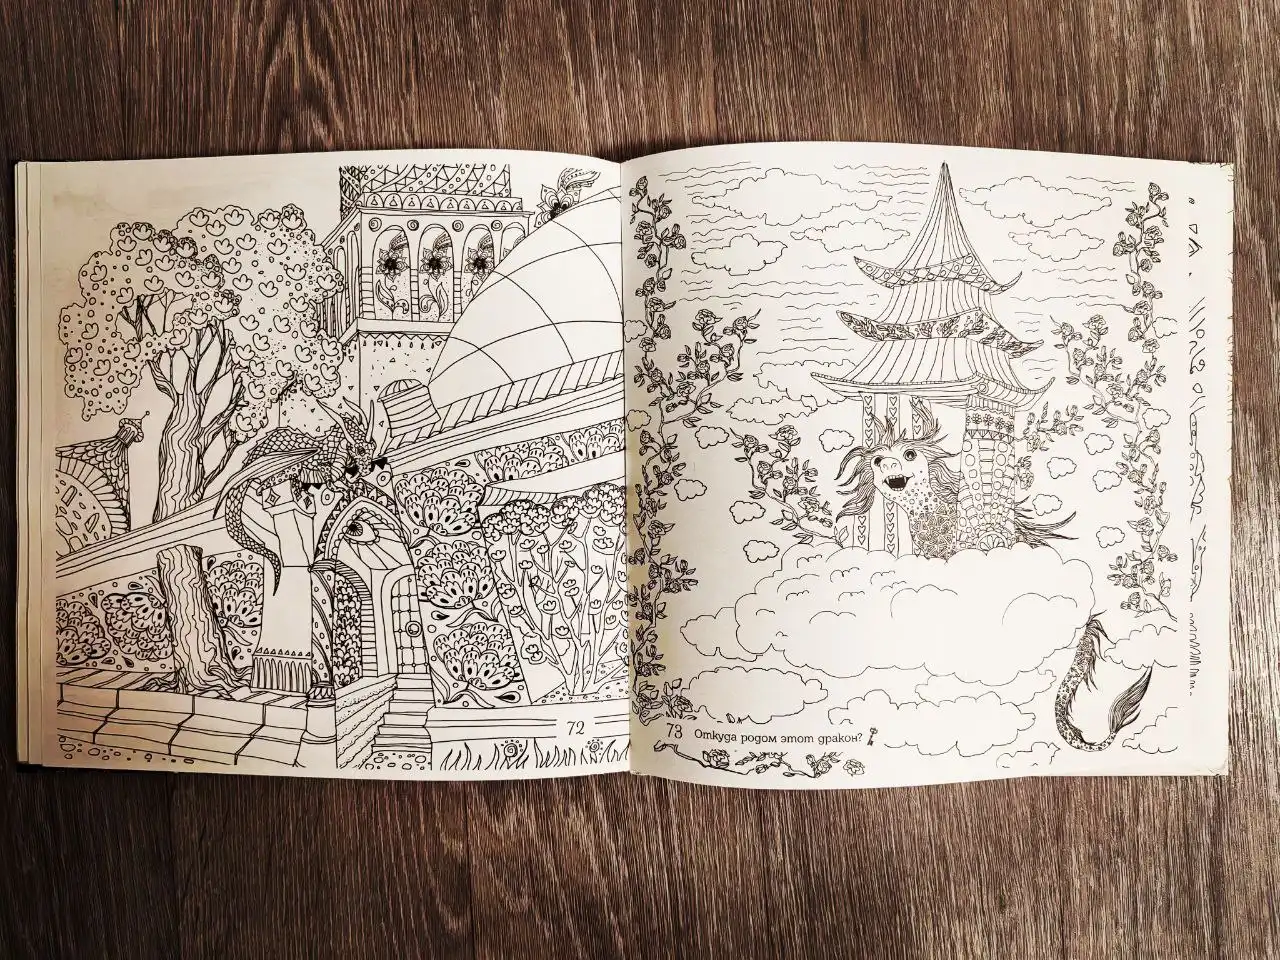 72
73 Откуда родом этот дракон?